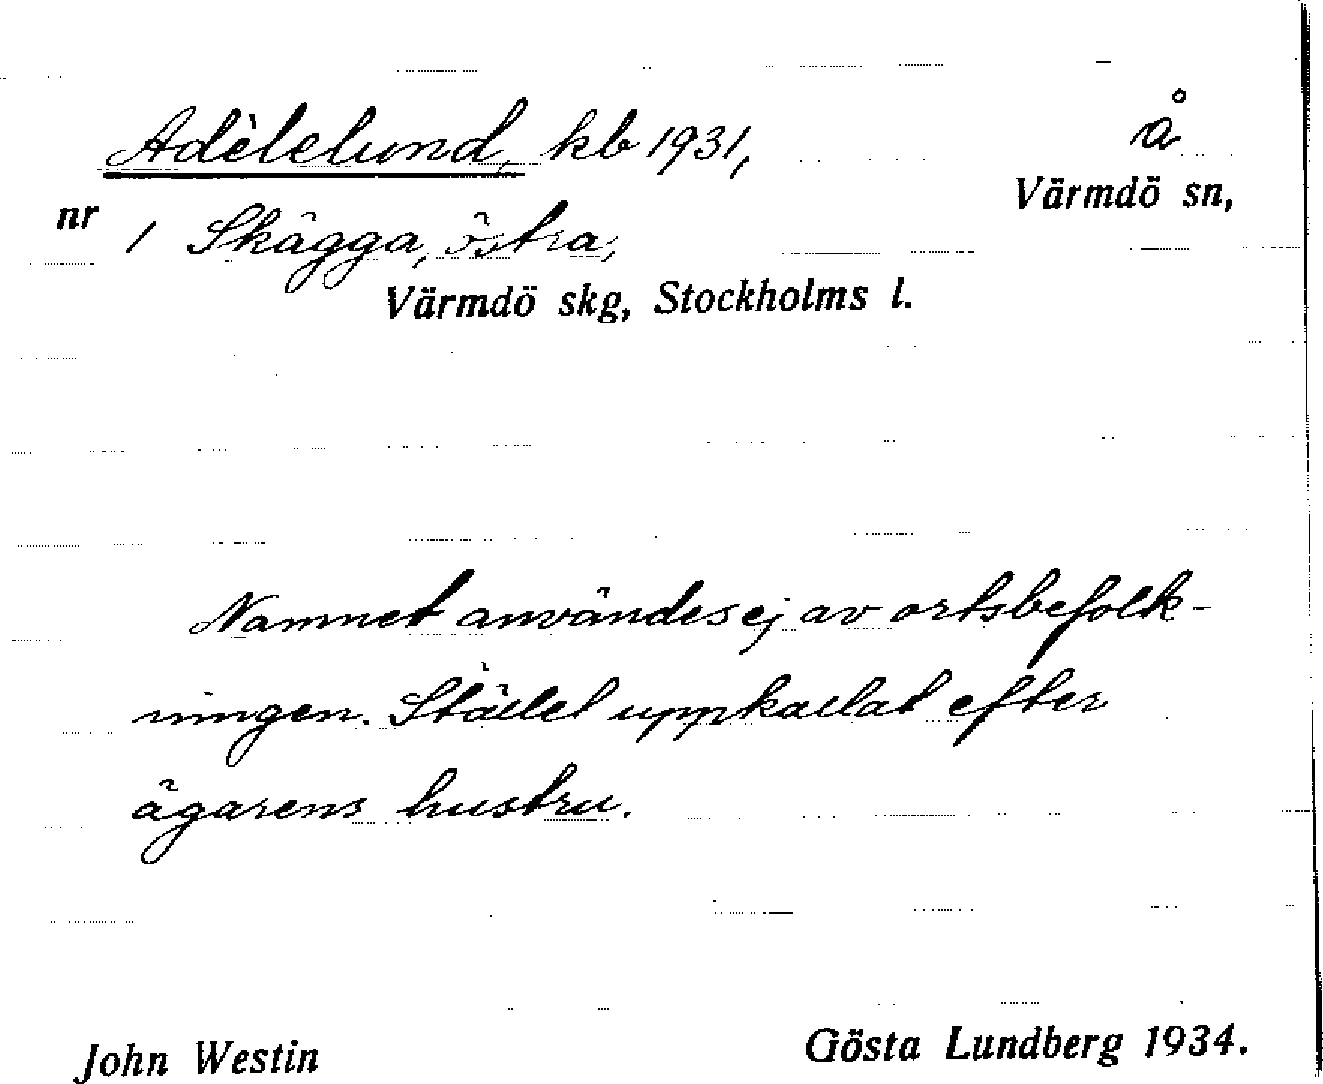 Adèlelund, kb 1931, å
Värmdö sn,
nr 1 Skägga, östra,
Värmdö skg, Stockholms l.
Namnet användes ej av ortsbefolk-
ningen. Stället uppkallat efter
ägarens hustru.
John Westin Gösta Lundberg 1934.